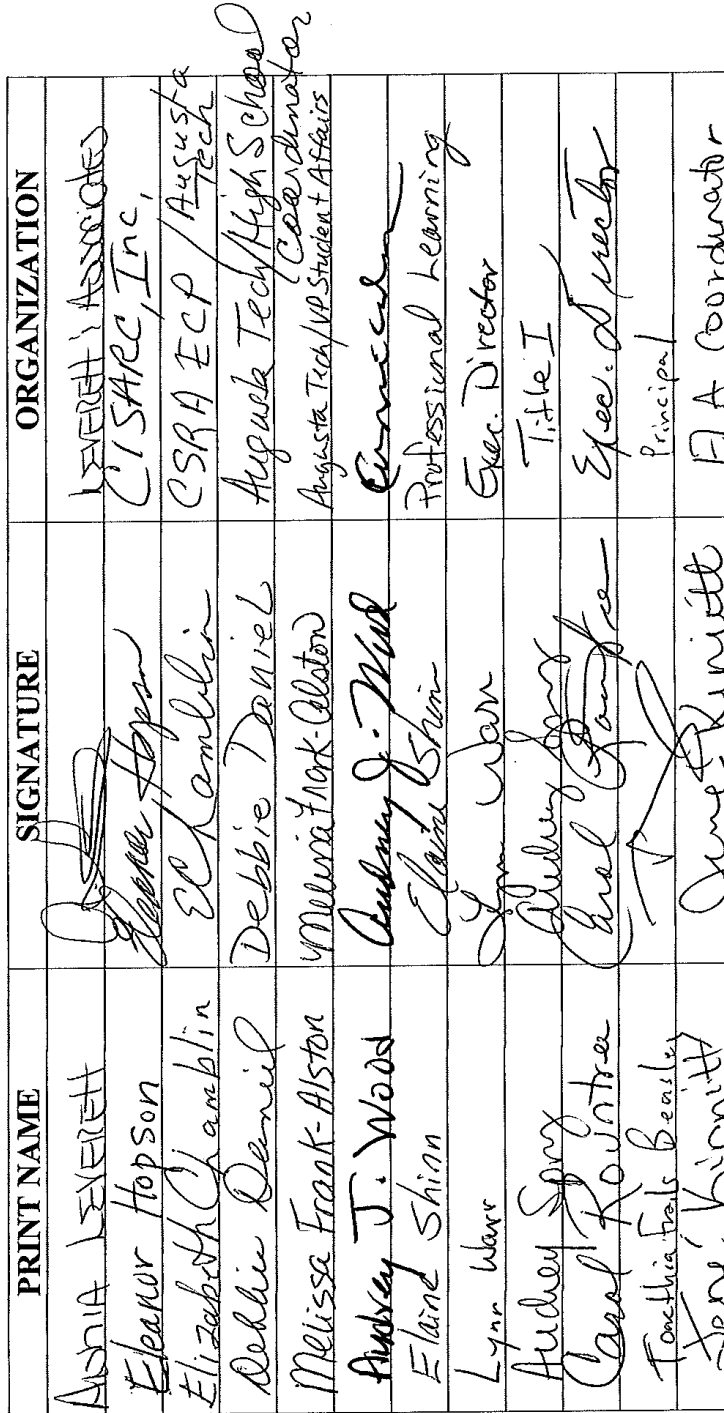 PRINT NAME SIGNATURE ORGANIZATION
LEVERETT LEVERETT & Associates
Eleanor Hopson Eleanor Hopson CISARC, Inc.
Elizabeth Chamblin E Chamblin CSRA ECP / Augusta Tech
Debbie Daniel Debbie Daniel Augusta Tech/High School Coordinator
Melissa Frank-Alston Melissa Frank-Alston Augusta Tech/VP Student Affairs
Audrey J. Wood Audrey J. Wood
Elaine Shinn Elaine Shinn Professional Learning
Lynn Warr Lynn Warr Exec. Director
Audrey Audrey Title I
Carol Rountree Carol Rountree Exec. Director
Beasley Principal
Kinnitt Kinnitt Coordinator